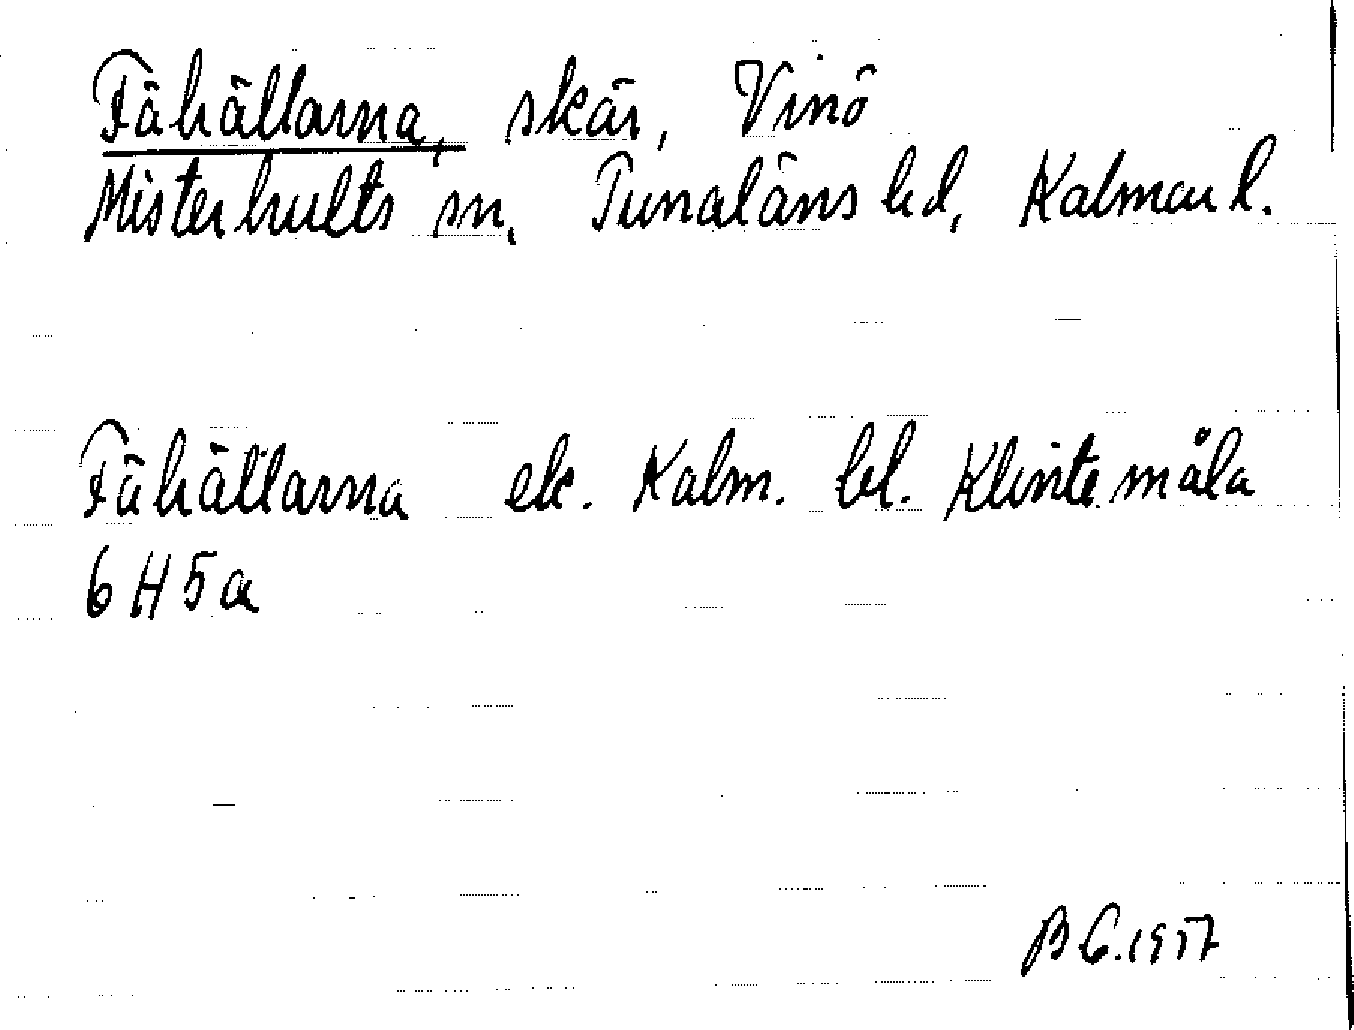 Fähällarna, skär, Vinö
Misterhults sn, Tunaläns hd, Kalmar l.
Fähällarna ek. Kalm. bl. Klintemåla
6H5a
BG.1957